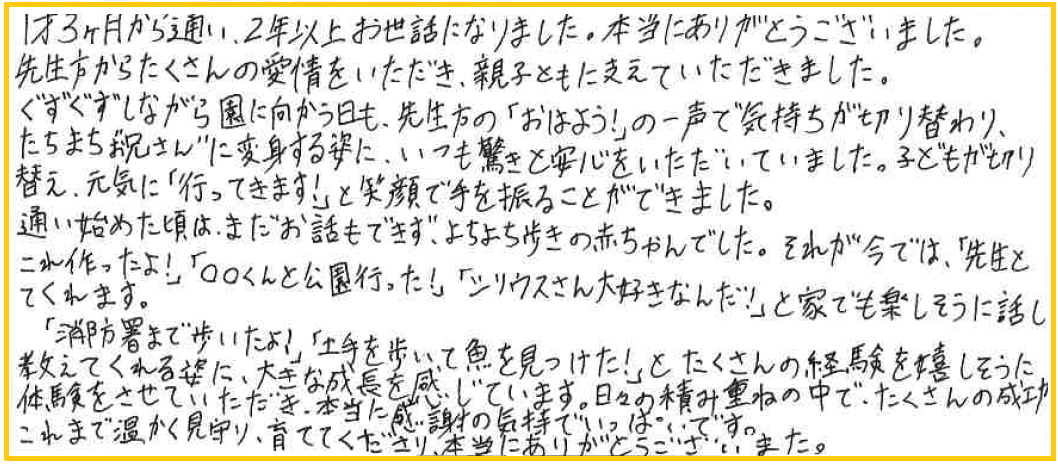 1才3ヶ月から通い、2年以上お世話になりました。本当にありがとうございました。
先生方からたくさんの愛情をいただき、親子ともに支えていただきました。
ぐずぐずしながら園に向かう日も、先生方の「おはよう!」の一声で気持ちが切り替わり、
たちまち"お兄さん"に変身する姿に、いつも驚きと安心をいただいていました。子どもが切り
替え、元気に「行ってきます!」と笑顔で手を振ることができました。
通い始めた頃は、まだお話もできず、よちよち歩きの赤ちゃんでした。それが今では、「先生と
これ作ったよ!」「〇〇くんと公園行った!」「シリウスさん大好きなんだ!」と家でも楽しそうに話し
てくれます。
「消防署まで歩いたよ!」「土手を歩いて魚を見つけた!」とたくさんの経験を嬉しそうに
教えてくれる姿に、大きな成長を感じています。日々の積み重ねの中で、たくさんの成功
体験をさせていただき、本当に感謝の気持でいっぱいです。
これまで温かく見守り、育ててくださり、本当にありがとうございました。